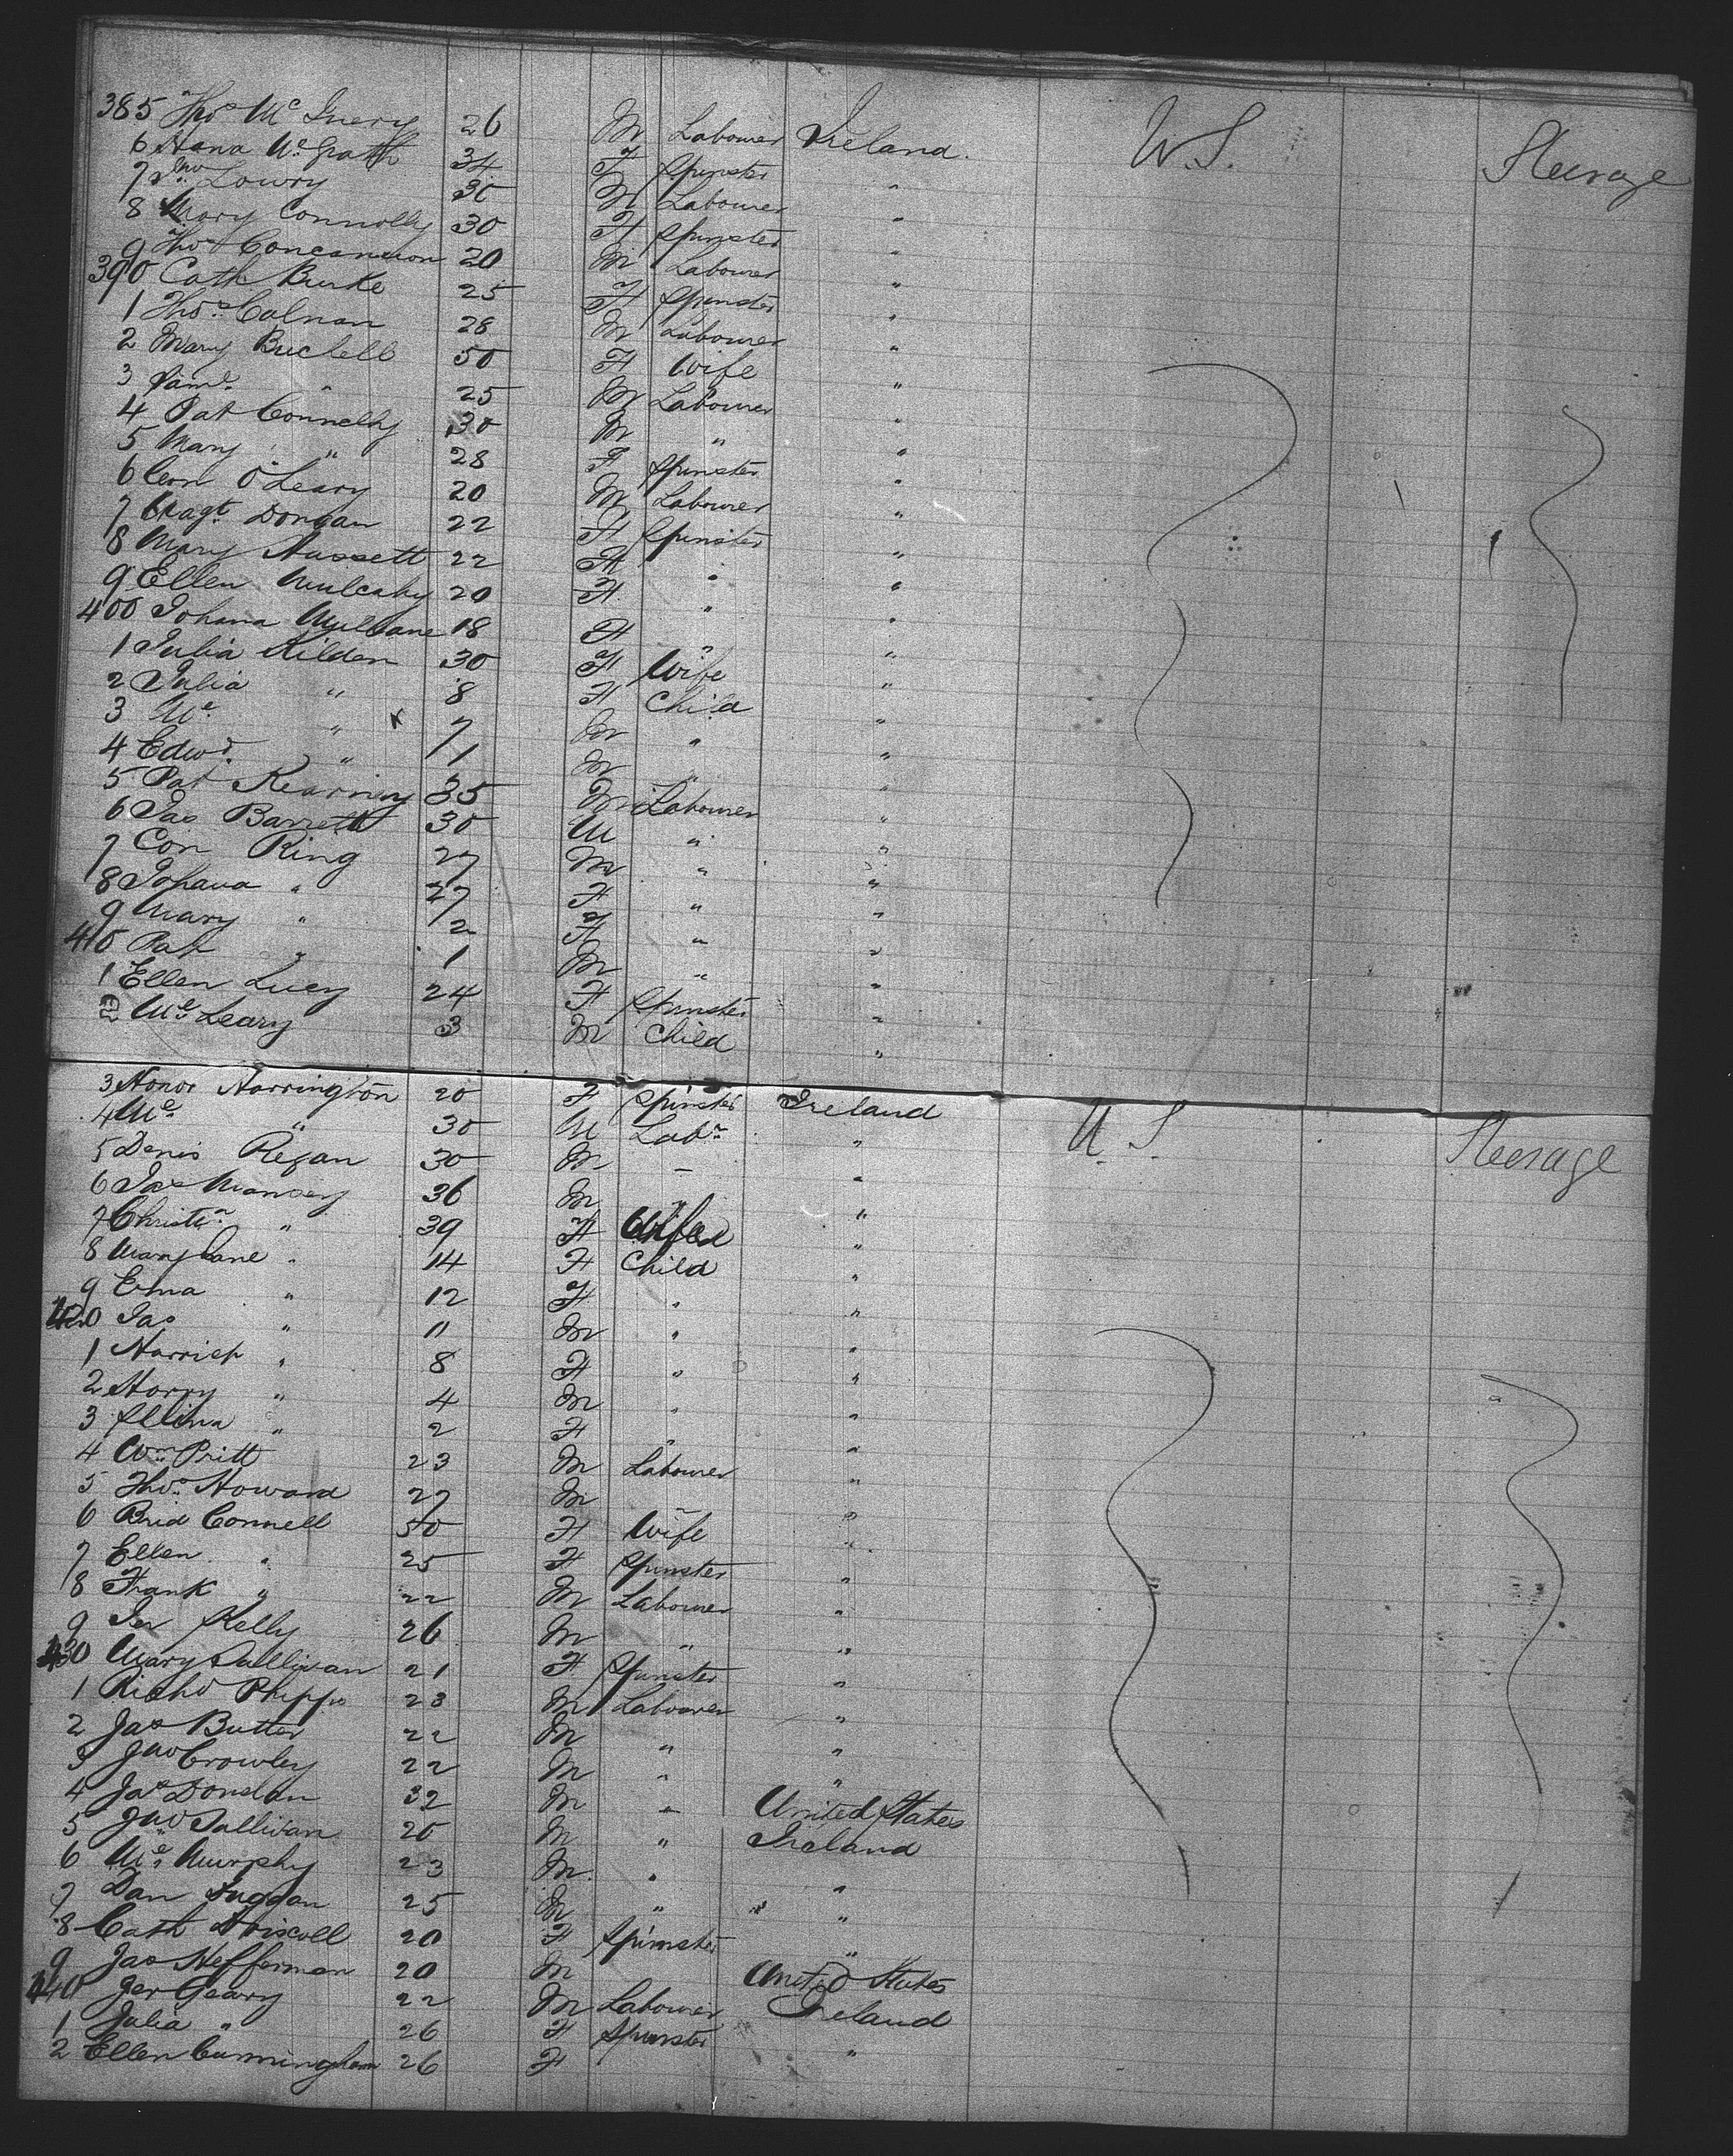 385 Thos Mc Inery 26 M Labourer Ireland. U.S. Steerage
6 Hana McGrath 34 F Spinster "
7 Jno Lowry 30 M Labourer "
8 Mary Connolly 30 F Spinster "
9 Thos Concannon 20 M Labourer "
390 Cath Burke 25 F Spinster "
1 Thos Colnan 28 M Labourer "
2 Mary Buckell 50 F Wife "
3 Saml " 25 M Labourer "
4 Pat Connelly 30 M " "
5 Mary " 28 F Spinster "
6 Corn O'Leary 20 M Labourer "
7 Magt Dongan 22 F Spinster "
8 Mary Hassett 22 F " "
9 Ellen Mulcahy 20 F " "
400 Johana Mullane 18 F " "
1 Julia Kilden 30 F Wife "
2 Julia " 8 F Child "
3 Ml " 7 M " "
4 Edwd " 1 M " "
5 Pat Kearney 35 M Labourer "
6 Jas Barrett 30 M " "
7 Con King 27 M " "
8 Johana " 27 F " "
9 Mary " 2 F " "
410 Pat " 1 M " "
1 Ellen Lucy 24 F Spinster "
2 Ml Leary 3 M Child "
3 Honor Harrington 20 F Spinster Ireland U.S. Steerage
4 Ml " 30 M Labr "
5 Denis Regan 30 M " "
6 Jas Mansey 36 M " "
7 Christn " 39 F Wife "
8 Mary Jane " 14 F Child "
9 Ema " 12 F " "
420 Jas " 11 M " "
1 Harriet " 8 F " "
2 Harry " 4 M " "
3 Ellina " 2 F " "
4 Wm Pritt 23 M Labourer "
5 Thos Howard 27 M " "
6 Brid Connell 50 F Wife "
7 Ellen " 25 F Spinster "
8 Frank " 22 M Labourer "
9 Jer Kelly 26 M " "
430 Mary Sullivan 21 F Spinster "
1 Richd Phipps 23 M Labourer "
2 Jas Butter 22 M " "
3 Jno Crowley 22 M " "
4 Jas Donelan 32 M " United States
5 Jno Sullivan 20 M " Ireland
6 Ml Murphy 23 M " "
7 Dan Duggan 25 M " "
8 Cath Driscoll 20 F Spinster "
9 Jas Heffernan 20 M United States
440 Jer Geary 22 M Labourer Ireland
1 Julia " 26 F Spinster "
2 Ellen Cunningham 26 F